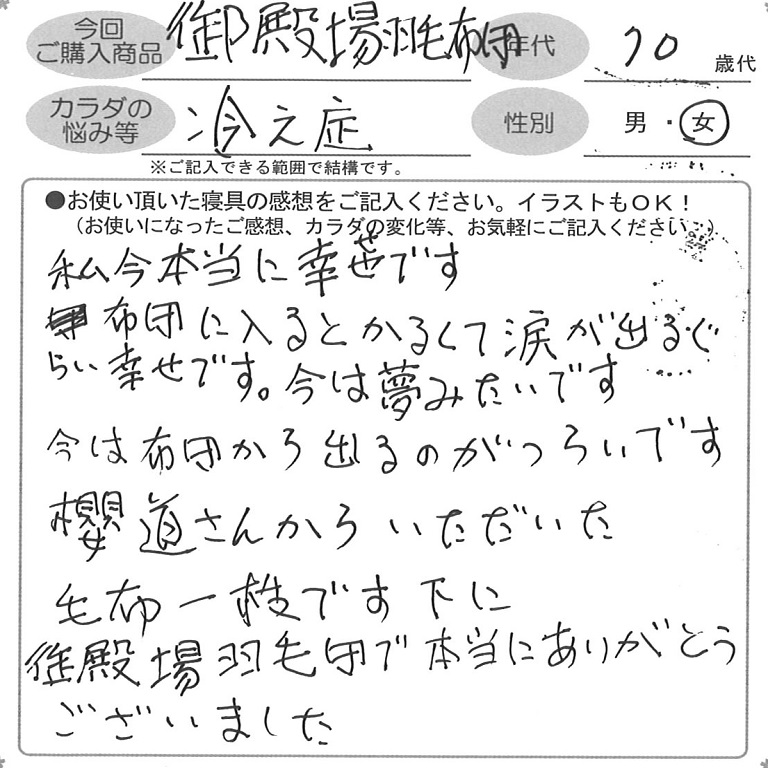 今回
ご購入商品 御殿場羽毛布団 年代 70 歳代
カラダの
悩み等 冷え症 性別 男・女
※ご記入できる範囲で結構です。
●お使い頂いた寝具の感想をご記入ください。イラストもOK!
(お使いになったご感想、カラダの変化等、お気軽にご記入ください。)
私今本当に幸せです
布団に入るとかるくて涙が出るぐ
らい幸せです。今は夢みたいです
今は布団から出るのがつらいです
櫻道さんからいただいた
毛布一枚です下に
御殿場羽毛団で本当にありがとう
ございました